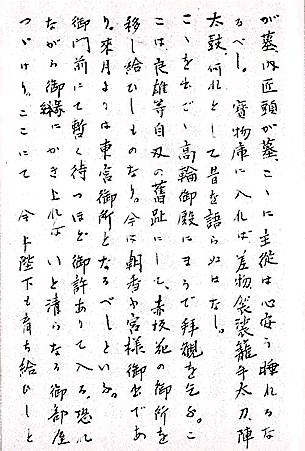 が墓、内匠頭が墓、こゝに主従は心安う睡れるな
るべし。寳物庫に入れば差物袋裟籠手太刀、陣
太鼓、何れとして昔を語らぬはなし。
こゝを出で、高輪御殿にまうで拝観を乞ふ。こ
こは良雄等自刃の舊趾にして、赤坂花の御所を
移し給ひしものなり。今は朝香宮様御出であ
り、来月よりは東宮御所となるべしといふ。
御門前にて暫く待つほど御許ありて入る。恐れ
ながら御縁にかき上れば、いと清らなる御部屋
つゞけり。ここにて今上陛下も育ち給ひしと